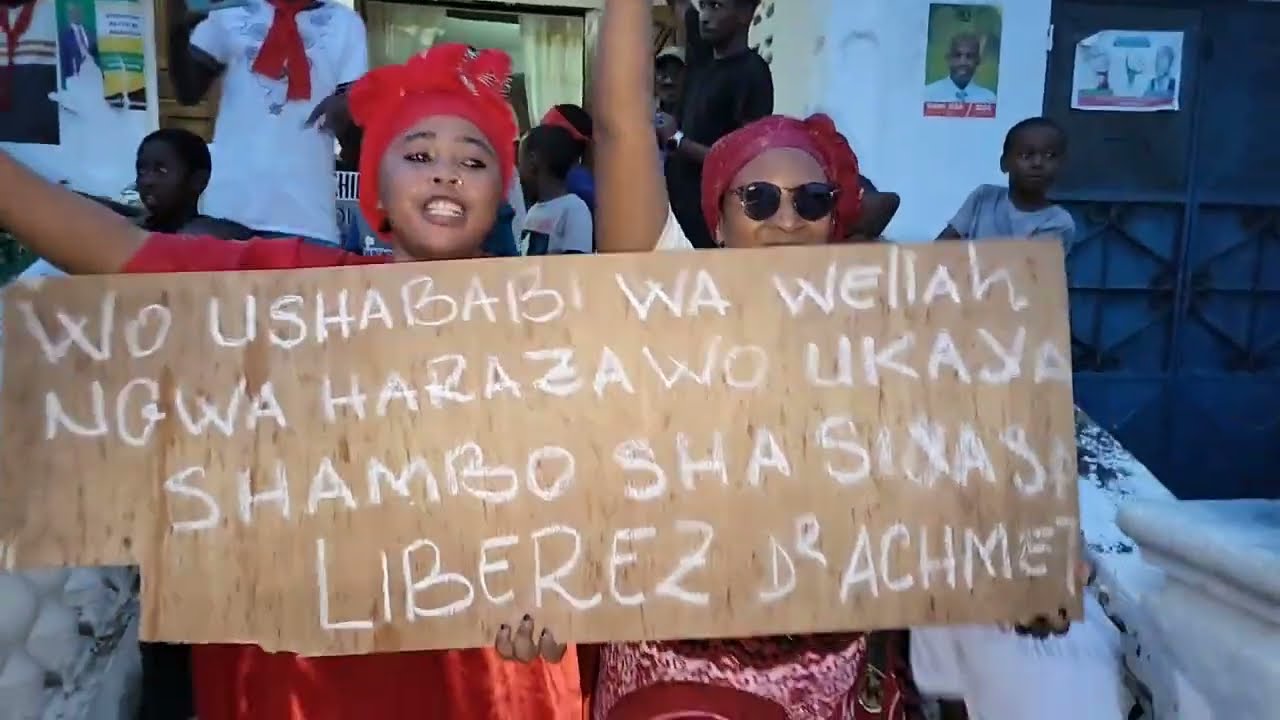 WO USHABABI WA WEllAh
NGWA HARAZAWO UKAYA
SHAMBO SHA SIYASA
LIBEREZ DR ACHMET